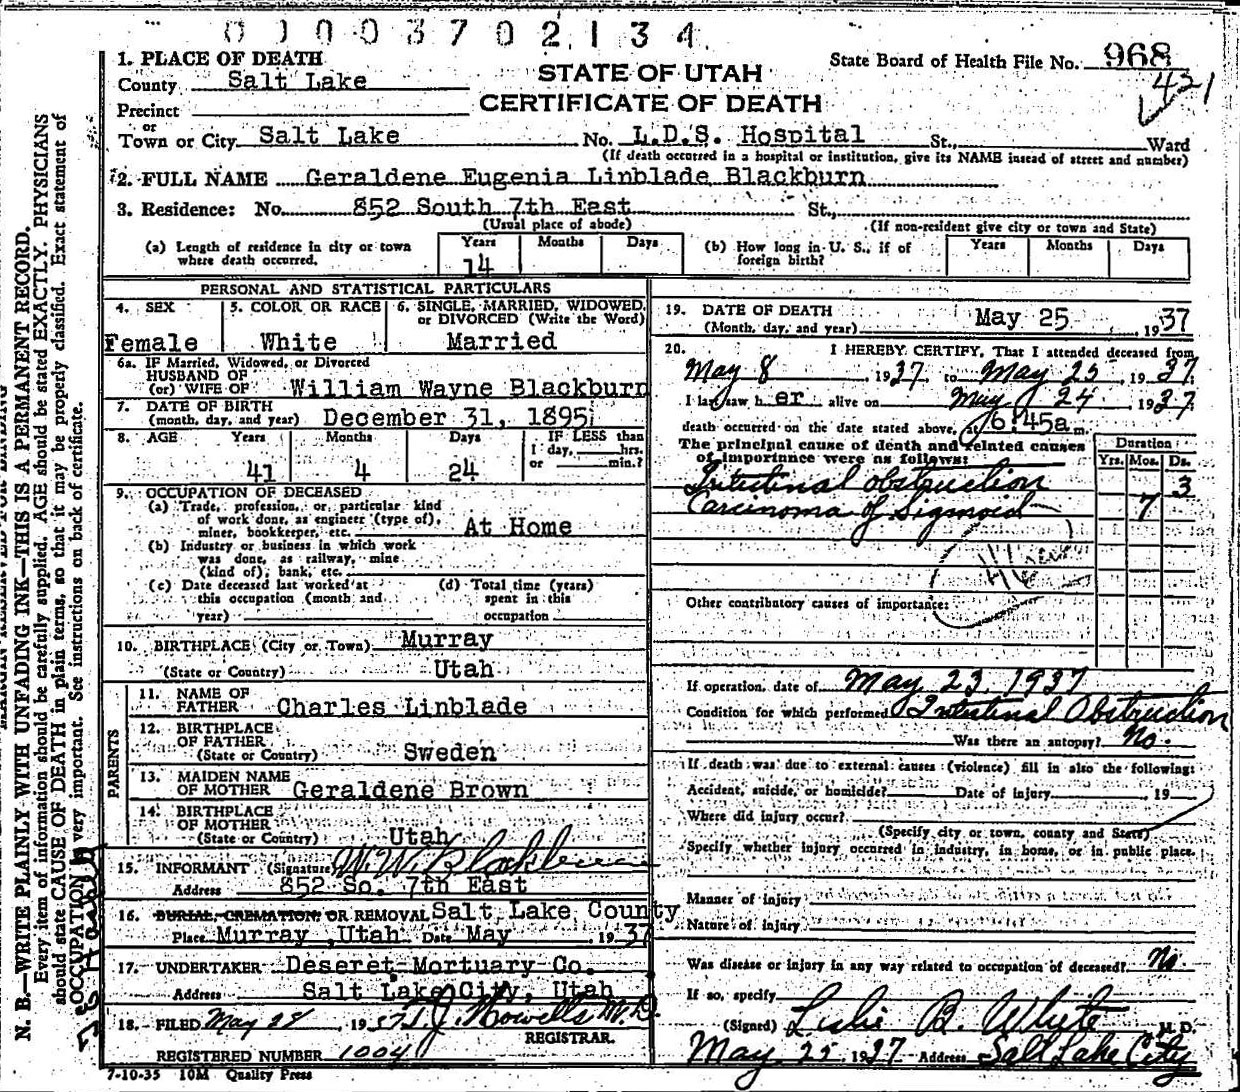 0 1 0 0 3 7 0 2 1 3 4
1. PLACE OF DEATH
County Salt Lake
Precinct
or
Town or City Salt Lake
STATE OF UTAH
CERTIFICATE OF DEATH
State Board of Health File No. 968
431
No. L.D.S. Hospital St., Ward
(If death occurred in a hospital or institution, give its NAME instead of street and number)
2. FULL NAME Geraldene Eugenia Linblade Blackburn
3. Residence: No. 852 South 7th East St.,
(Usual place of abode)
(If non-resident give city or town and State)
(a) Length of residence in city or town where death occurred. Years 14 Months Days
(b) How long in U. S., if of foreign birth? Years Months Days
PERSONAL AND STATISTICAL PARTICULARS
4. SEX Female
5. COLOR OR RACE White
6. SINGLE, MARRIED, WIDOWED, or DIVORCED (Write the Word) Married
6a. IF Married, Widowed, or Divorced
HUSBAND OF
(or) WIFE OF William Wayne Blackburn
7. DATE OF BIRTH
(month, day, and year) December 31, 1895
8. AGE Years 41 Months 4 Days 24
IF LESS than
1 day, hrs.
or min.?
9. OCCUPATION OF DECEASED
(a) Trade, profession, or particular kind
of work done, as engineer (type of),
miner, bookkeeper, etc. At Home
(b) Industry or business in which work
was done, as railway, mine
(kind of), bank, etc.
(c) Date deceased last worked at
this occupation (month and
year)
(d) Total time (years)
spent in this
occupation
10. BIRTHPLACE (City or Town) Murray
(State or Country) Utah
PARENTS
11. NAME OF
FATHER Charles Linblade
12. BIRTHPLACE
OF FATHER
(State or Country) Sweden
13. MAIDEN NAME
OF MOTHER Geraldene Brown
14. BIRTHPLACE
OF MOTHER
(State or Country) Utah
15. INFORMANT (Signature) W. W. Blackburn
Address 852 So. 7th East
16. BURIAL, CREMATION, OR REMOVAL Salt Lake County
Place Murray, Utah Date May 1937
17. UNDERTAKER Deseret Mortuary Co.
Address Salt Lake City, Utah
18. FILED May 28 1937 T. J. Howells M.D.
REGISTRAR.
REGISTERED NUMBER 1004
7-10-35 10M Quality Press
19. DATE OF DEATH
(Month, day, and year) May 25, 1937
20. I HEREBY CERTIFY, That I attended deceased from
May 8, 1937 to May 25 1937
I last saw her alive on May 24 1937
death occurred on the date stated above, at 6:45a m.
The principal cause of death and related causes
of importance were as follows:
Duration
Yrs. Mos. Ds.
Intestinal obstruction 3
Carcinoma of Sigmoid 7
Other contributory causes of importance:
If operation, date of May 23, 1937
Condition for which performed Intestinal Obstruction
Was there an autopsy? No.
If death was due to external causes (violence) fill in also the following:
Accident, suicide, or homicide? Date of injury 19
Where did injury occur?
(Specify city or town, county and State)
Specify whether injury occurred in industry, in home, or in public place.
Manner of injury
Nature of injury
Was disease or injury in any way related to occupation of deceased? No.
If so, specify
(Signed) Leslie B. White M. D.
May 25 1937 Address Salt Lake City
N. B.—WRITE PLAINLY WITH UNFADING INK—THIS IS A PERMANENT RECORD.
Every item of information should be carefully supplied. AGE should be stated EXACTLY. PHYSICIANS
should state CAUSE OF DEATH in plain terms, so that it may be properly classified. Exact statement of
OCCUPATION very important. See instructions on back of certificate.